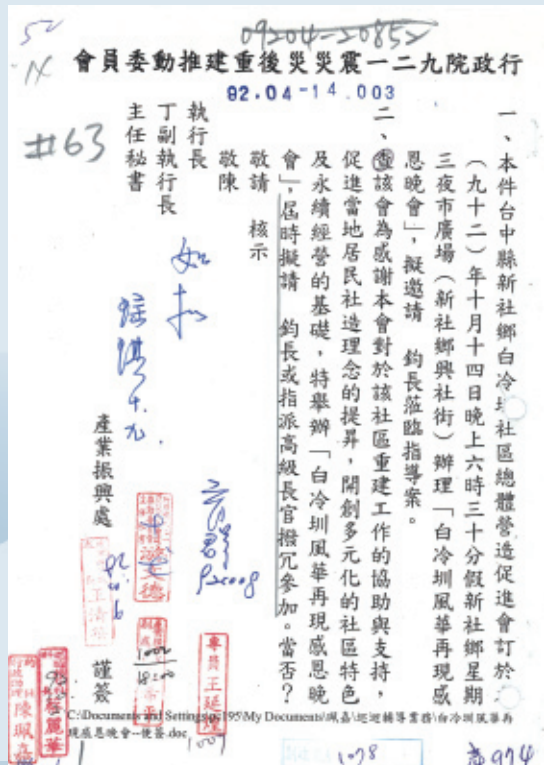 09204-20852
52
#63
會員委動推建重後災災震一二九院政行
92.04-14.003
一、本件台中縣新社鄉白冷圳社區總體營造促進會訂於
(九十二)年十月十四日晚上六時三十分假新社鄉星期
三夜市廣場(新社鄉興社街)辦理「白冷圳風華再現感
恩晚會」,擬邀請 鈞長蒞臨指導案。
二、查該會為感謝本會對於該社區重建工作的協助與支持,
促進當地居民社造理念的提昇,開創多元化的社區特色
及永續經營的基礎,特舉辦「白冷圳風華再現感恩晚
會」,屆時擬請 鈞長或指派高級長官撥冗參加。當否?
敬請 核示
敬陳
執行長
丁副執行長
主任秘書
如擬
產業振興處
謹簽
王清
專員王延
1009
蔡麗華
陳珮
C:\Documents and Settings\os195\My Documents\珮嘉\巡迴輔導業務\白冷圳風華再
現感恩晚會--便簽.doc
1078